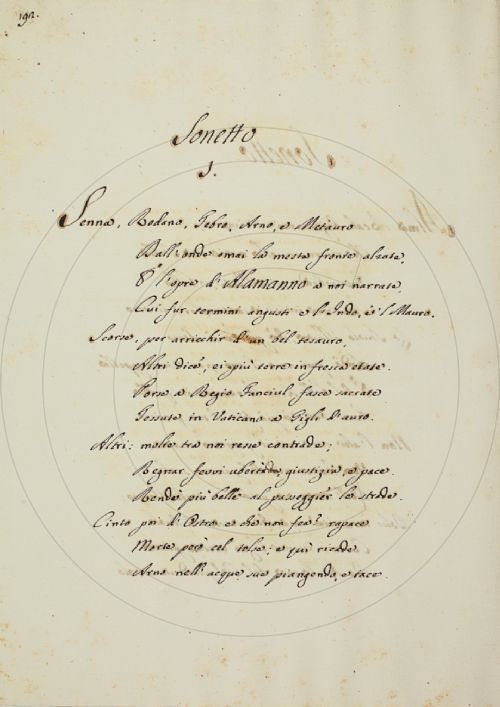 192.
Sonetto
I.
Senna, Rodano, Tebro, Arno, e Metauro
Dall'onde omai la mesta fronte alzate,
E l'opre d'Alamanno a noi narrate,
Cui fur termini angusti e l'Indo, e 'l Mauro.
Scorse, per arricchir d'un bel tesauro,
Altri dice, ei più terre in fresca etate.
Porse a Regio Fanciul fasce sacrate
Tessute in Vaticano a Gigli d'auro.
Altri: molte tra noi resse contrade;
Regnar feovi ubertade, giustizia, e pace
Rendè più belle al passeggier le strade.
Cinto poi d'Ostro e che non fea? rapace
Morte però cel tolse; e qui ricade
Arno nell'acque sue piangendo, e tace.